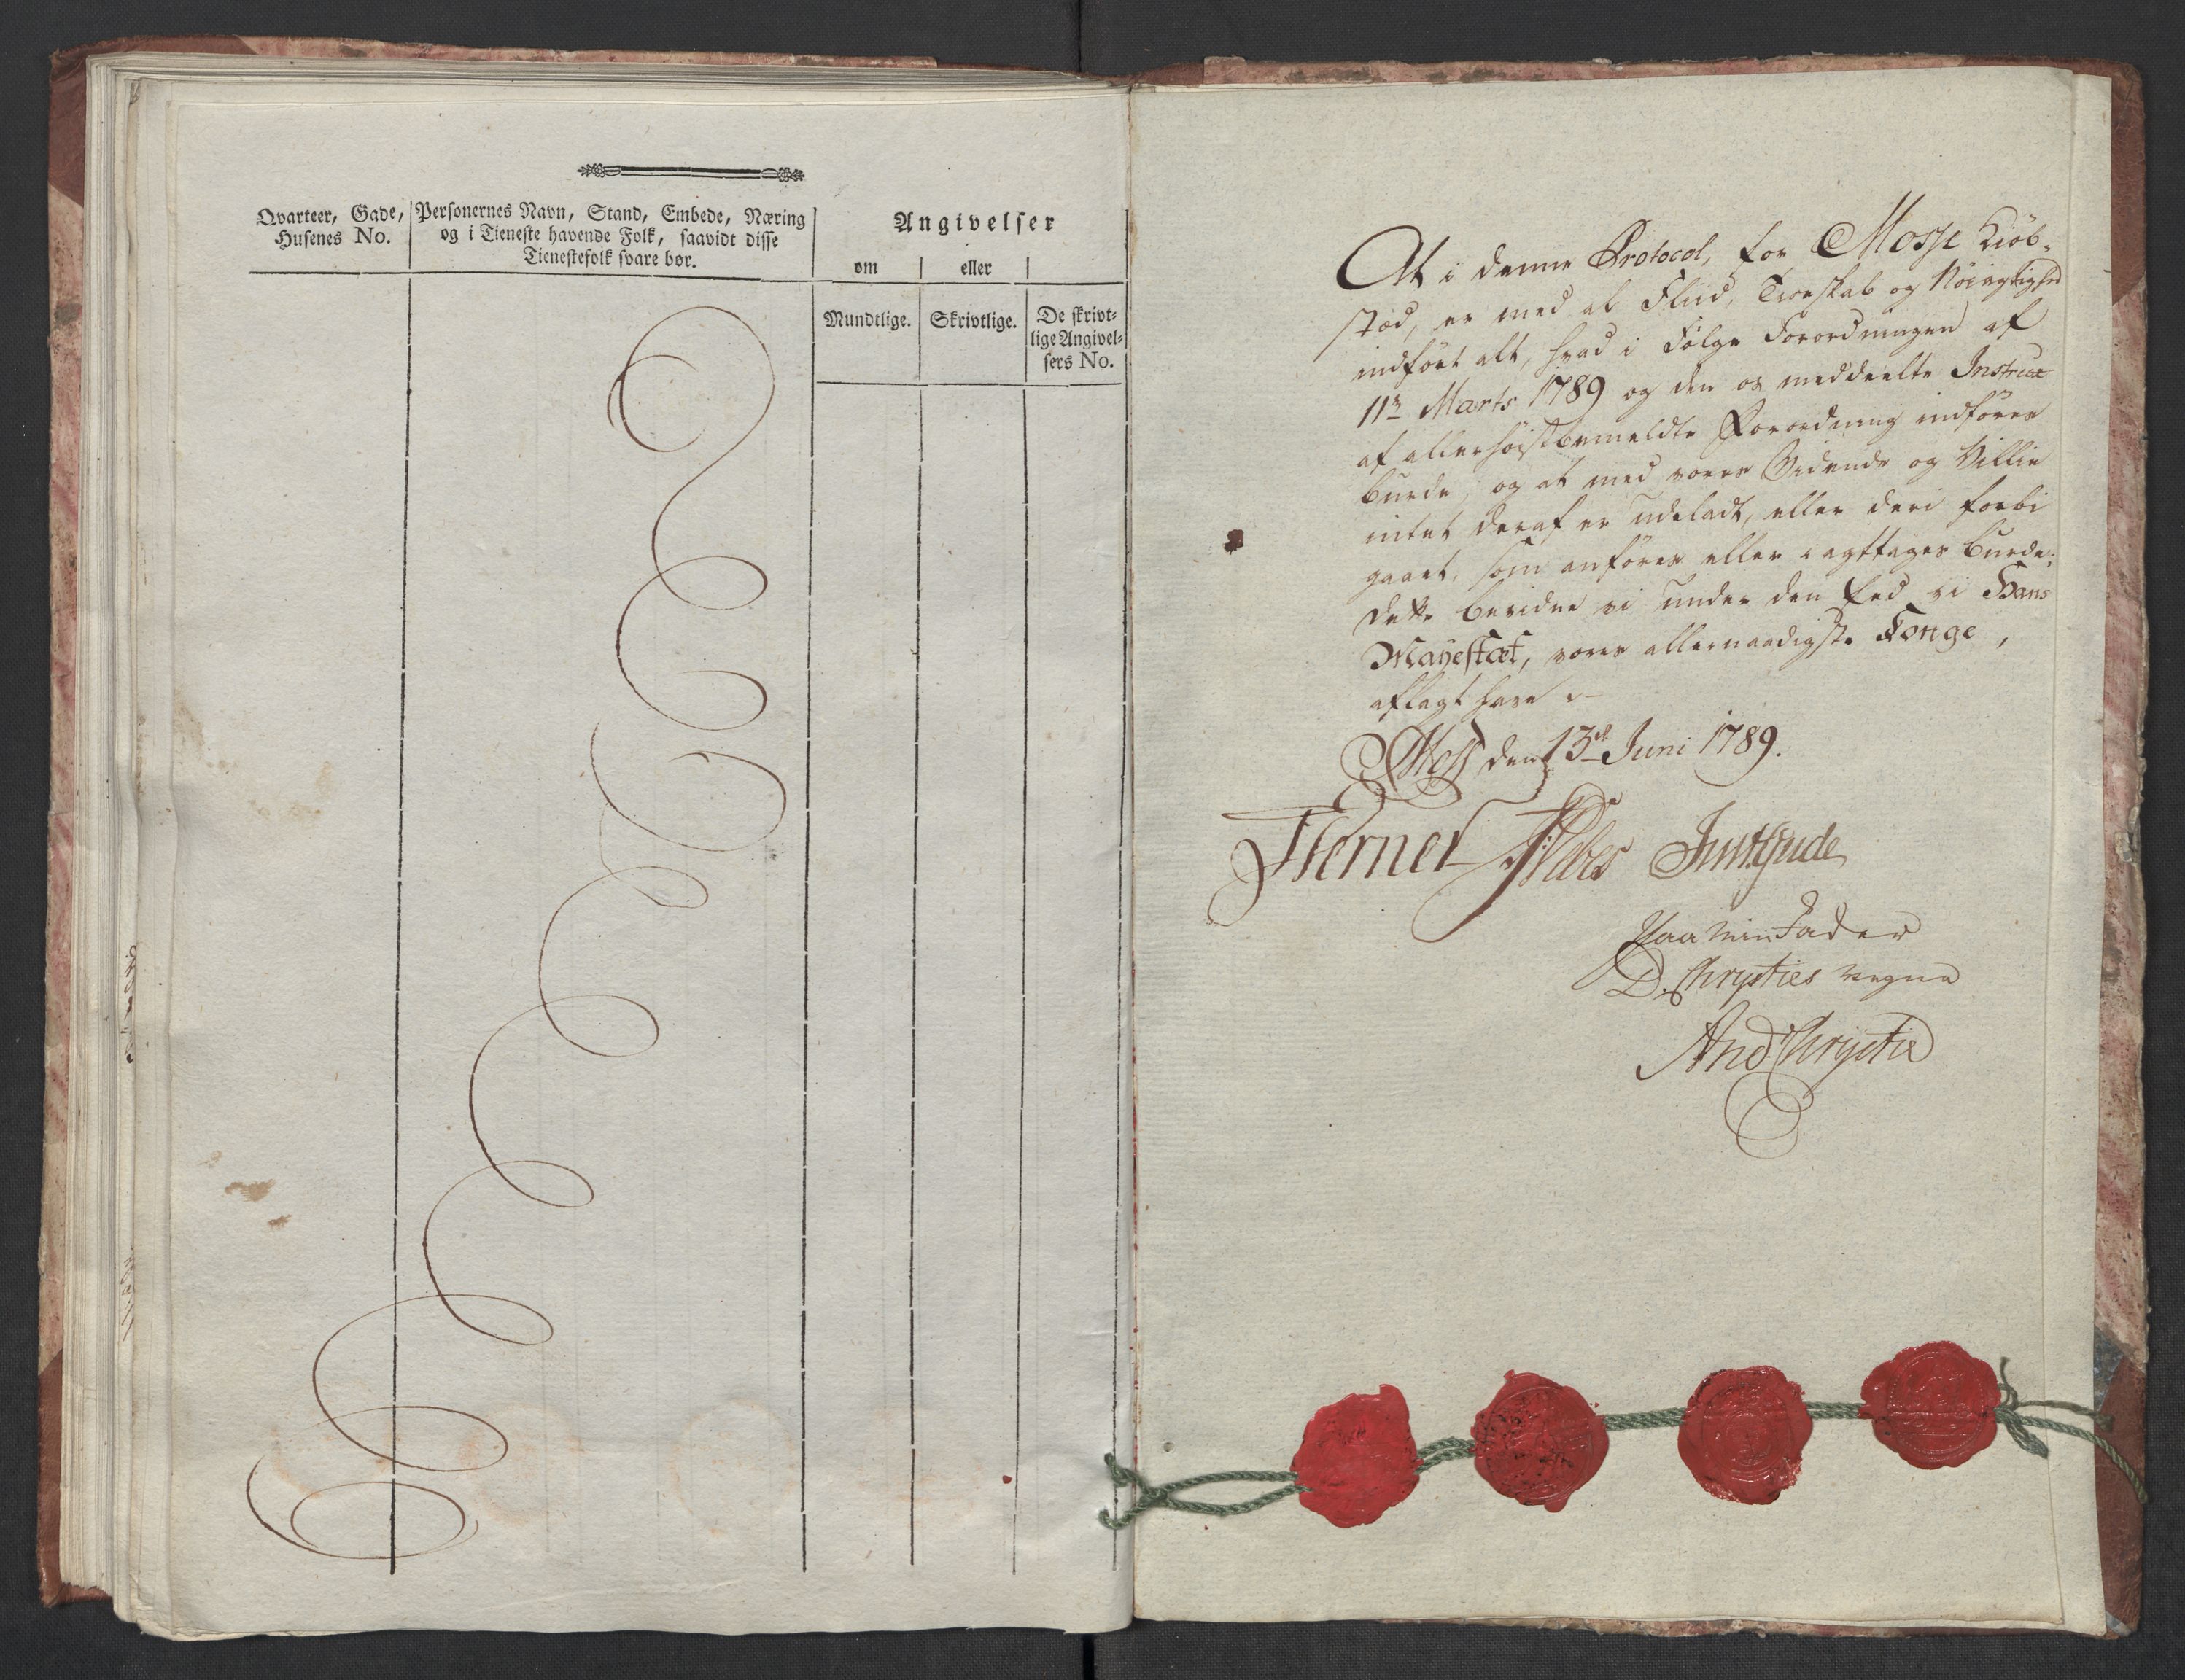 Qvarteer, Gade,
Husenes No.
Personernes Navn, Stand, Embede, Næring
og i Tieneste havende Folk, saavidt disse
Tienestefolk svare bør.
Angivelser
om eller
Mundtlige.
Skrivtlige.
De skrivt-
lige Angivel-
sers No.
At i denne Protocol, for Mosse Kiöb-
stæd, er med al Fliid, Troeskab og Nöiagtighed
indfört alt, hvad i Fölge Forordningen af
11te Marts 1789 og den os meddeelte Instrux
af allerhöistbemeldte Forordning indföres
burde, og at med vores Vidende og Villie
intet deraf er udeladt, eller deri forbi
gaaet, som anföres eller iagttages burde;
Dette bevidne vi under den Eed vi Hans
Mayestæt, vores allernaadigste Konge,
aflagt have.
Moss den 13de Juni 1789.
Werner
Just Gude
Paa min Fader
D. Chrysties vegne
And: Chrystie